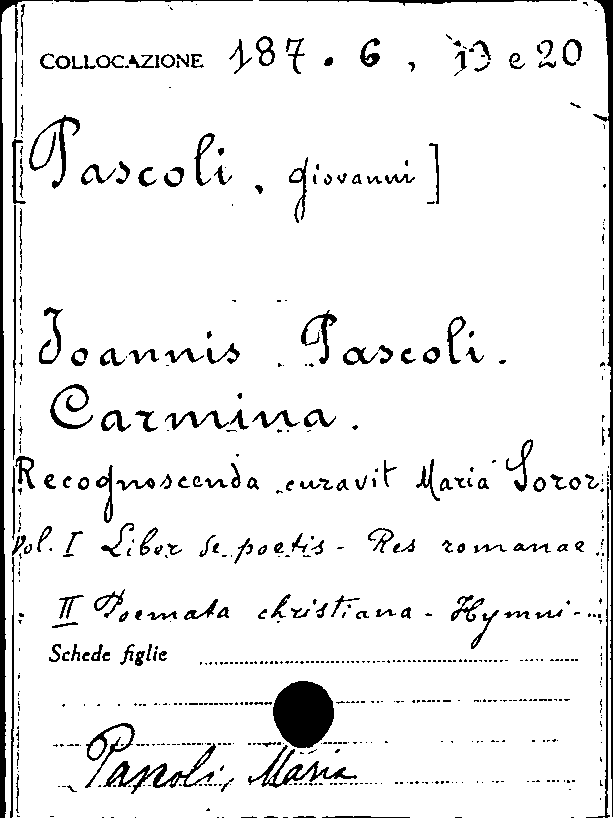 COLLOCAZIONE 187. 6, 19 e 20
[Pascoli, Giovanni]
Joannis Pascoli.
Carmina.
Recognoscenda curavit Maria Soror.
Vol. I Liber de poetis - Res romanae.
: II Poemata christiana - Hymni -
Schede figlie
Pascoli, Maria